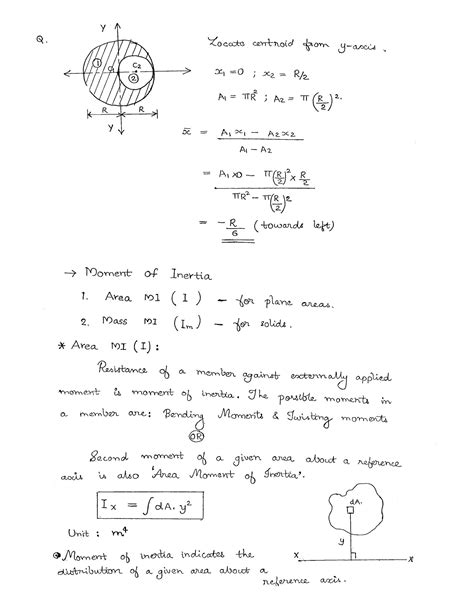 Q.
Y
Locate centroid from y-axis.
1
O
C2
2
x1 = 0 ; x2 = R/2
A1 = πR² ; A2 = π(R/2)².
R R
Y
x̄ = A1x1 − A2x2 / A1 − A2
= A1 x 0 − π(R/2)² x R/2 / πR² − π(R/2)²
= −R/6 (towards left)
→ Moment of Inertia
1. Area MI (I) – for plane areas.
2. Mass MI (Im) – for solids.
* Area MI (I) :
Resistance of a member against externally applied
moment is moment of inertia. The possible moments in
a member are: Bending Moments & Twisting moments
OR
Second moment of a given area about a reference
axis is also 'Area Moment of Inertia'.
Ix = ∫dA. y²
dA.
Unit : m⁴
y
Moment of inertia indicates the
X X
distribution of a given area about a
reference axis.